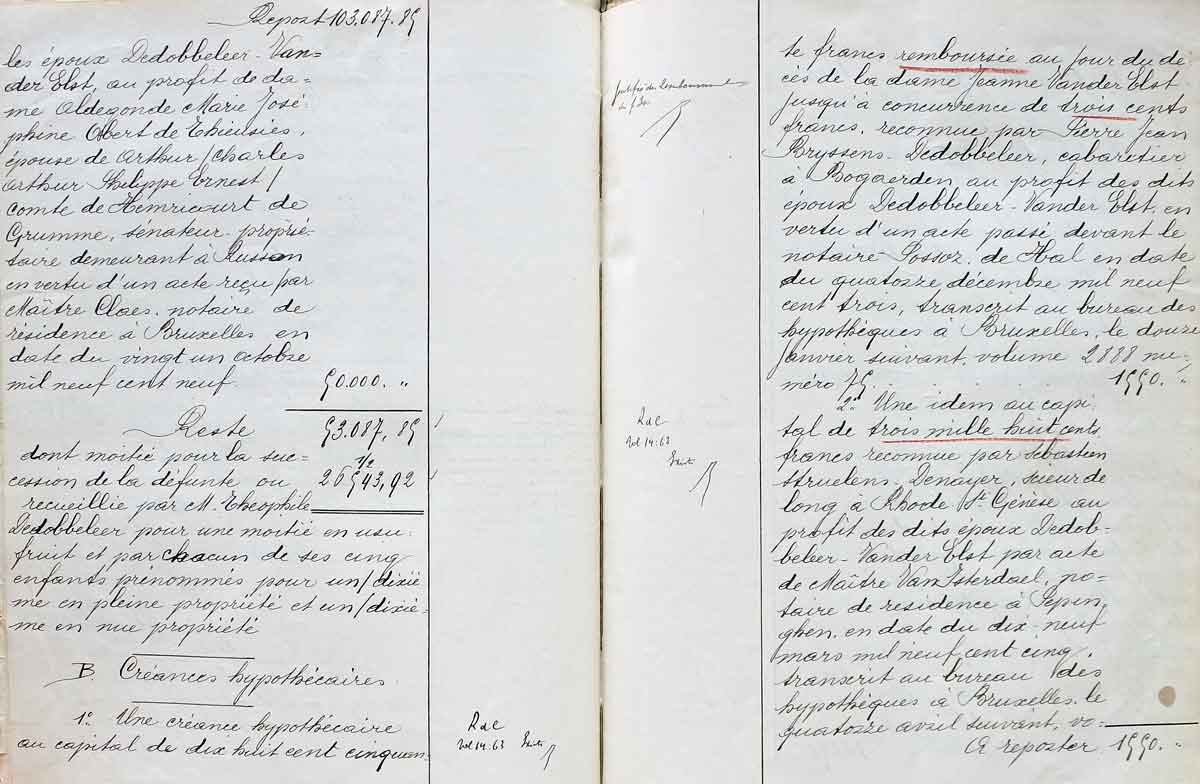 Report 103.087.89
les époux Dedobbeleer-Van-
der Elst, au profit de da-
me Aldegonde Marie José-
phine Obert de Thieusies,
épouse de Arthur /Charles
Arthur Philippe Ernest/
comte de Hemricourt de
Grumme, sénateur-proprié-
taire demeurant à Russon
en vertu d'un acte reçu par
Maître Claes, notaire de
résidence à Bruxelles en
date du vingt un octobre
mil neuf cent neuf. 50.000. "
Reste 53.087,89
dont moitié pour la suc- 1/2
cession de la défunte ou 26543,92
recueillie par M. Theophile
Dedobbeleer pour une moitié en usu-
fruit et par chacun de ses cinq
enfants prénommés pour un/dixiè-
me en pleine propriété et un/dixiè-
me en nue propriété
B. Créances hypothécaires.
1° Une créance hypothécaire
au capital de dix huit cent cinquan-
RdC
Vol 14.63
te francs remboursée au jour du dé-
cès de la dame Jeanne Vander Elst
jusqu'à concurrence de trois cents
francs, reconnue par Pierre Jean
Bryssens-Dedobbeleer, cabaretier
à Bogaerden au profit des dits
époux Dedobbeleer-Vander Elst, en
vertu d'un acte passé devant le
notaire Possoz, de Hal en date
du quatorze décembre mil neuf
cent trois, transcrit au bureau des
hypothèques à Bruxelles, le douze
janvier suivant, volume 2888 nu-
méro 79. 1550. "
RdC
Vol 14.63
2° Une idem au capi-
tal de trois mille huit cents
francs reconnue par Sébastien
Struelens-Denayer, scieur de
long à Rhode St Genèse au
profit des dits époux Dedob-
beleer-Vander Elst par acte
de Maître Van Isterdael, no-
taire de résidence à Pepin-
ghen, en date du dix-neuf
mars mil neuf cent cinq,
transcrit au bureau des
hypothèques à Bruxelles, le
quatorze avril suivant, vo-
A reporter 1550. "